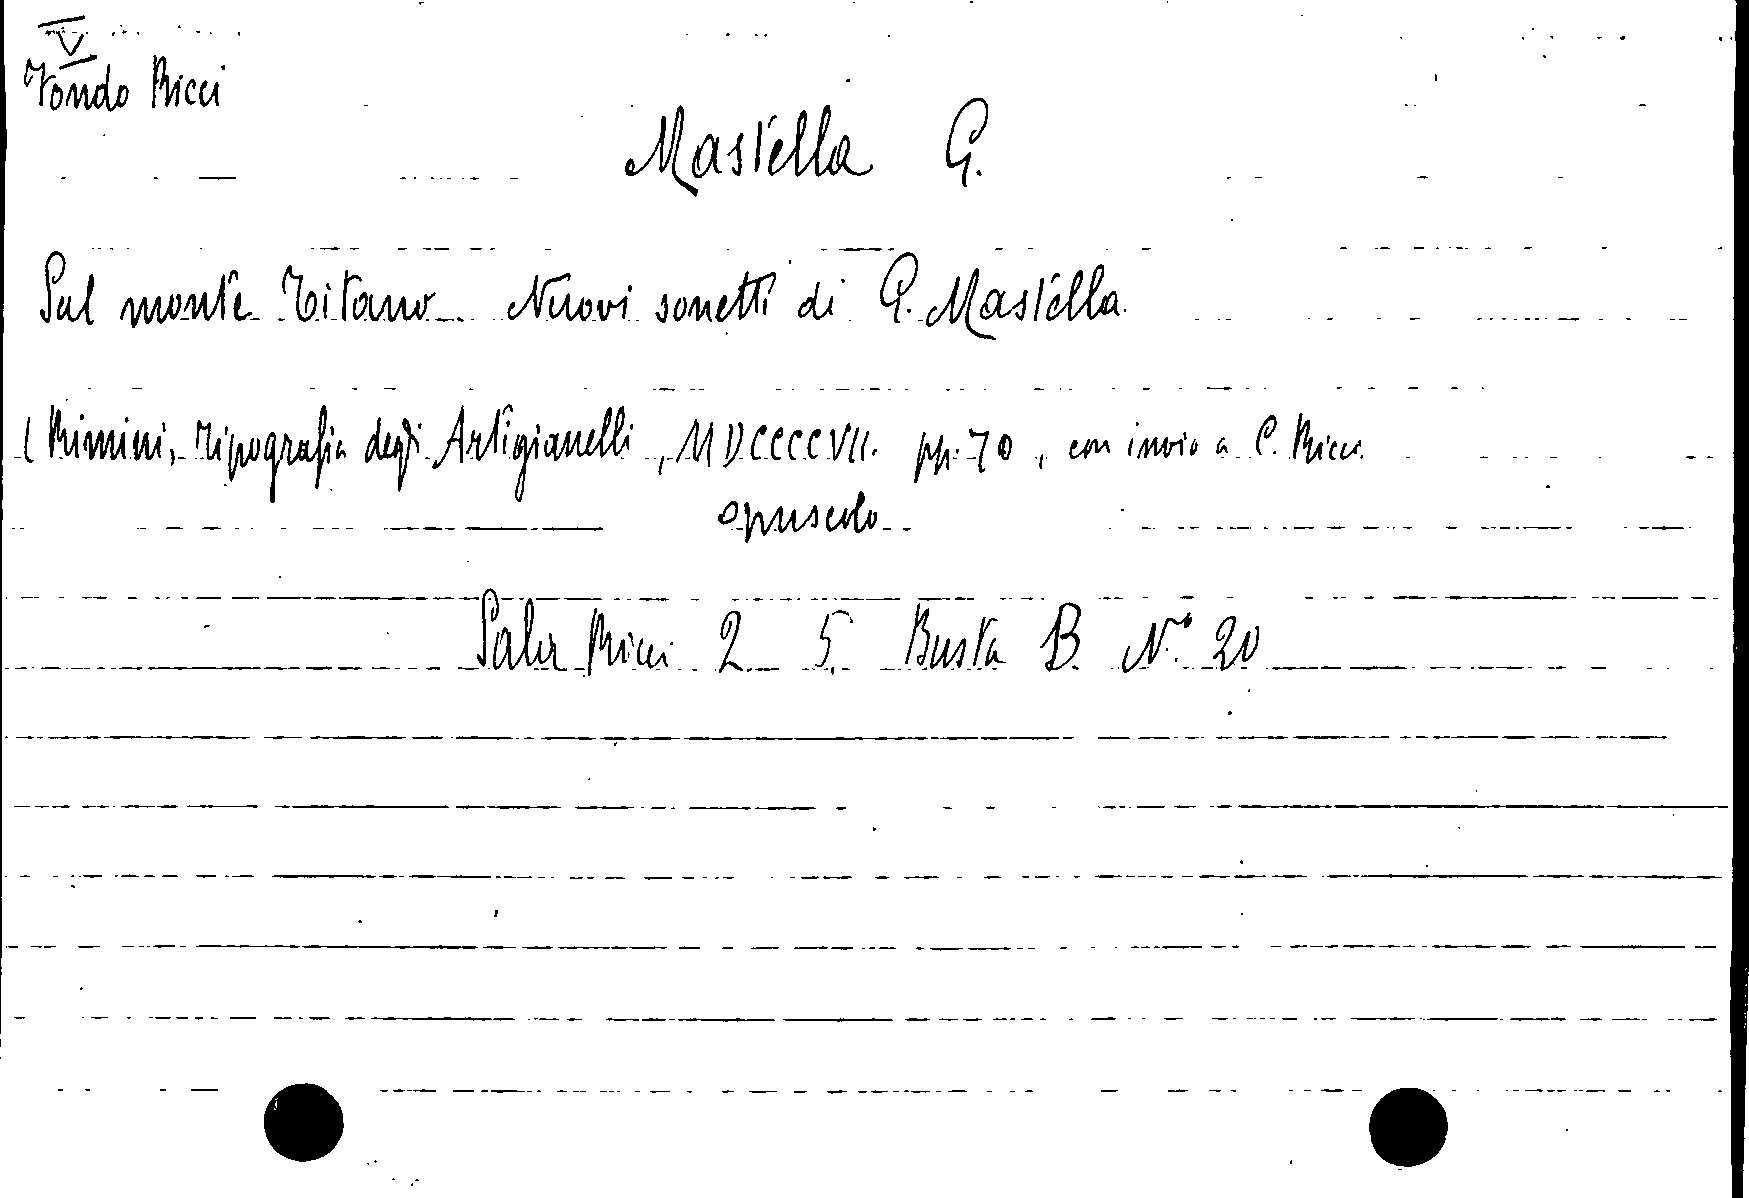 V
Fondo Ricci
Mastella G.
Sul monte Titano Nuovi sonetti di G. Mastella
( Rimini, Tipografia degli Artigianelli, MDCCCCVII. pp. 70, con invio a C. Ricci.
opuscolo
Sala Ricci 2 5. Busta B. N.° 20